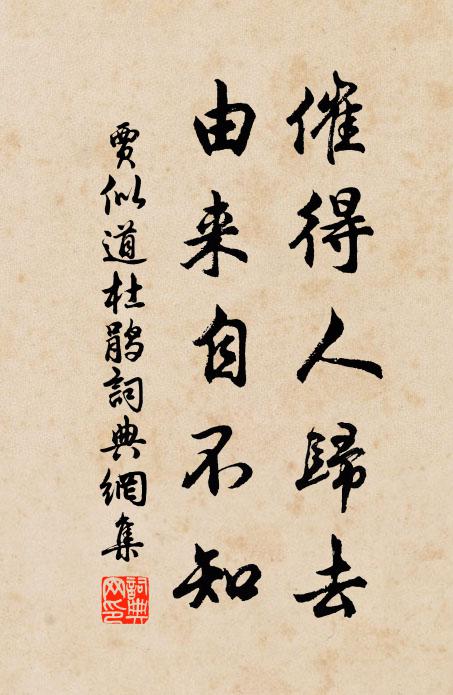 催得人歸去
由来自不知
賈似道杜鵑詞典網集
詞典網印